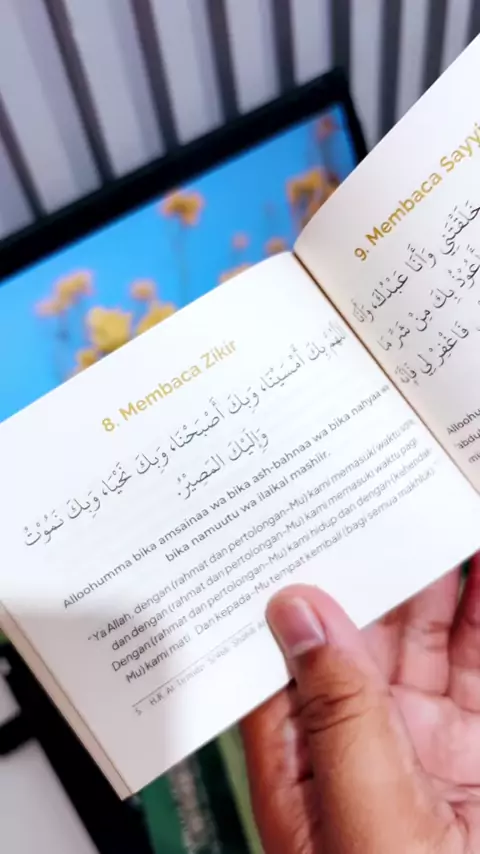 8. Membaca Zikir
اَللّٰهُمَّ بِكَ أَمْسَيْنَا، وَبِكَ أَصْبَحْنَا، وَبِكَ نَحْيَا، وَبِكَ نَمُوْتُ
وَإِلَيْكَ الْمَصِيْرُ.
Alloohumma bika amsainaa wa bika ash-bahnaa wa bika nahyaa wa
bika namuutu wa ilaikal mashiir.
"Ya Allah, dengan (rahmat dan pertolongan-Mu) kami memasuki waktu sore,
dan dengan (rahmat dan pertolongan-Mu) kami memasuki waktu pagi.
Dengan (rahmat dan pertolongan-Mu) kami hidup dan dengan (kehendak-
Mu) kami mati. Dan kepada-Mu tempat kembali (bagi semua makhluk)."
5 H.R. At-Tirmidzi
9. Membaca Sayyi
خَلَقْتَنِي وَأَنَا عَبْدُكَ، وَأَنَا
أَعُوْذُ بِكَ مِنْ شَرِّ مَا
فَاغْفِرْ لِي فَإِنَّهُ
Alloohu